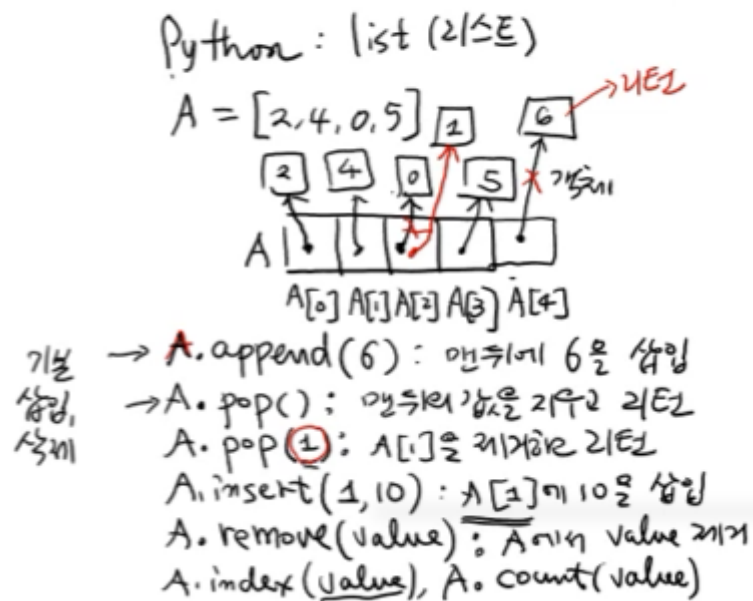 Python : list (리스트)
A = [2,4,0,5]
1
6
리턴
2
4
0
5
객체
A
A[0] A[1] A[2] A[3] A[4]
기본 → A.append(6) : 맨뒤에 6을 삽입
삽입, → A.pop() : 맨뒤의 값을 지우고 리턴
삭제 A.pop(1) : A[1]을 제거하고 리턴
A.insert(1,10) : A[1]에 10을 삽입
A.remove(value) : A에서 value 제거
A.index(value), A.count(value)